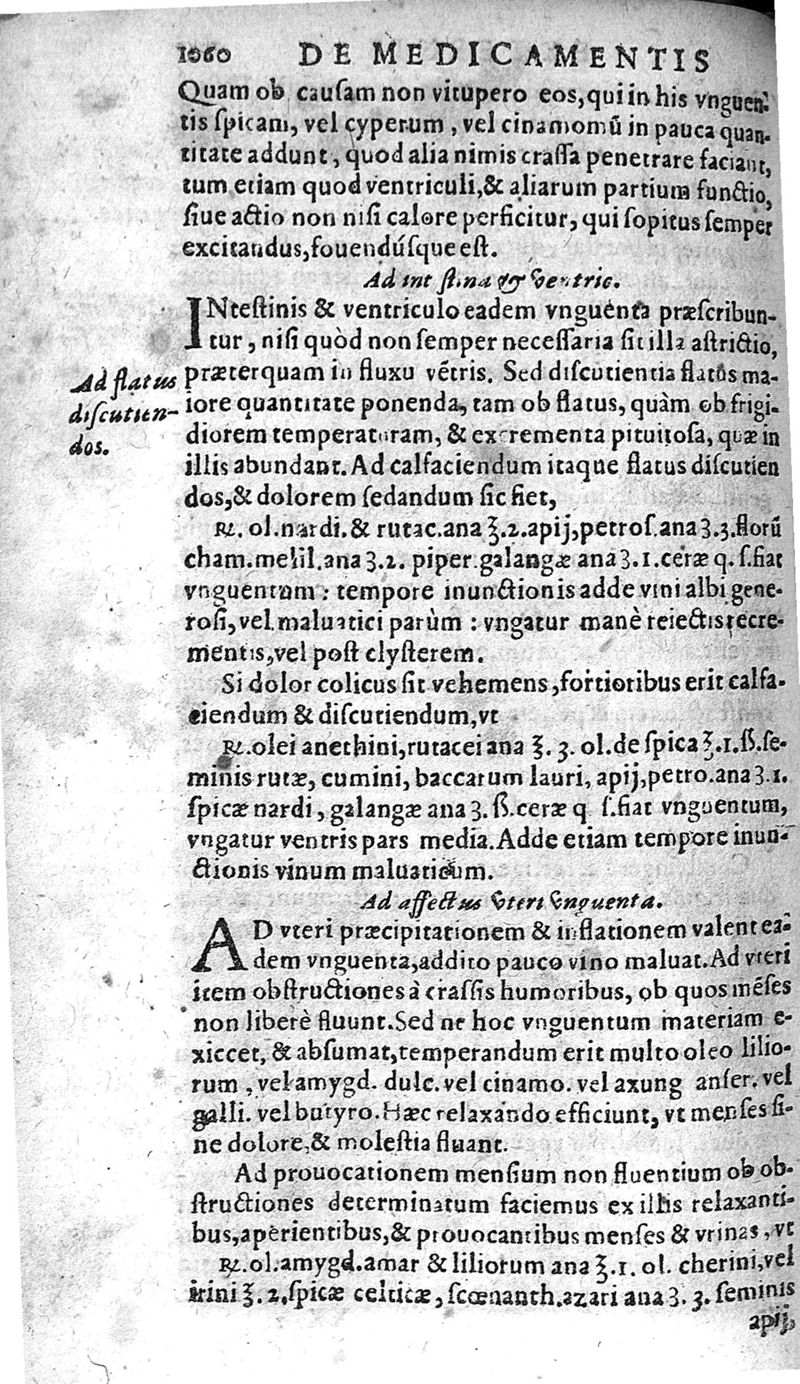 1060 DE MEDICAMENTIS
Quam ob cauſam non vitupero eos, qui in his vnguen-
tis ſpicam, vel cyperum, vel cinamomū in pauca quan-
titate addunt, quod alia nimis craſſa penetrare faciant,
tum etiam quod ventriculi, & aliarum partium functio,
ſiue actio non niſi calore perficitur, qui ſopitus ſemper
excitandus, fouendúſque eſt.
Ad inteſtina & ventric.
INteſtinis & ventriculo eadem vnguenta præſcribun-
tur, niſi quòd non ſemper neceſſaria ſit illa aſtrictio,
præterquam in fluxu vētris. Sed diſcutientia flatus ma-
Ad flatus
diſcutien-
dos.
iore quantitate ponenda, tam ob flatus, quàm ob frigi-
diorem temperaturam, & excrementa pituitoſa, quæ in
illis abundant. Ad calfaciendum itaque flatus diſcutien
dos, & dolorem ſedandum ſic fiet,
℞. ol. nardi. & rutac. ana ℥.2. apij, petroſ. ana ʒ.3. florū
cham. melil. ana ʒ.2. piper. galangæ ana ʒ.1. ceræ q. ſ. fiat
vnguentum: tempore inunctionis adde vini albi gene-
roſi, vel maluatici parùm: vngatur manè reiectis recre-
mentis, vel poſt clyſterem.
Si dolor colicus ſit vehemens, fortioribus erit calfa-
ciendum & diſcutiendum, vt
℞. olei anethini, rutacei ana ℥. 3. ol. de ſpica ℥.1.ß. ſe-
minis rutæ, cumini, baccarum lauri, apij, petro. ana ʒ.1.
ſpicæ nardi, galangæ ana ʒ. ß. ceræ q ſ. fiat vnguentum,
vngatur ventris pars media. Adde etiam tempore inun-
ctionis vinum maluaticum.
Ad affectus vteri vnguenta.
AD vteri præcipitationem & inflationem valent ea-
dem vnguenta, addito pauco vino maluat. Ad vteri
item obſtructiones à craſſis humoribus, ob quos mēſes
non liberè fluunt. Sed ne hoc vnguentum materiam e-
xiccet, & abſumat, temperandum erit multo oleo lilio-
rum, vel amygd. dulc. vel cinamo. vel axung anſer. vel
galli. vel butyro. Hæc relaxando efficiunt, vt menſes ſi-
ne dolore, & moleſtia fluant.
Ad prouocationem menſium non fluentium ob ob-
ſtructiones determinatum faciemus ex illis relaxanti-
bus, aperientibus, & prouocantibus menſes & vrinas, vt
℞. ol. amygd. amar & liliorum ana ℥.1. ol. cherini, vel
irini ℥. 2. ſpicæ celticæ, ſcœnanth. azari ana ʒ. 3. ſeminis
apij,